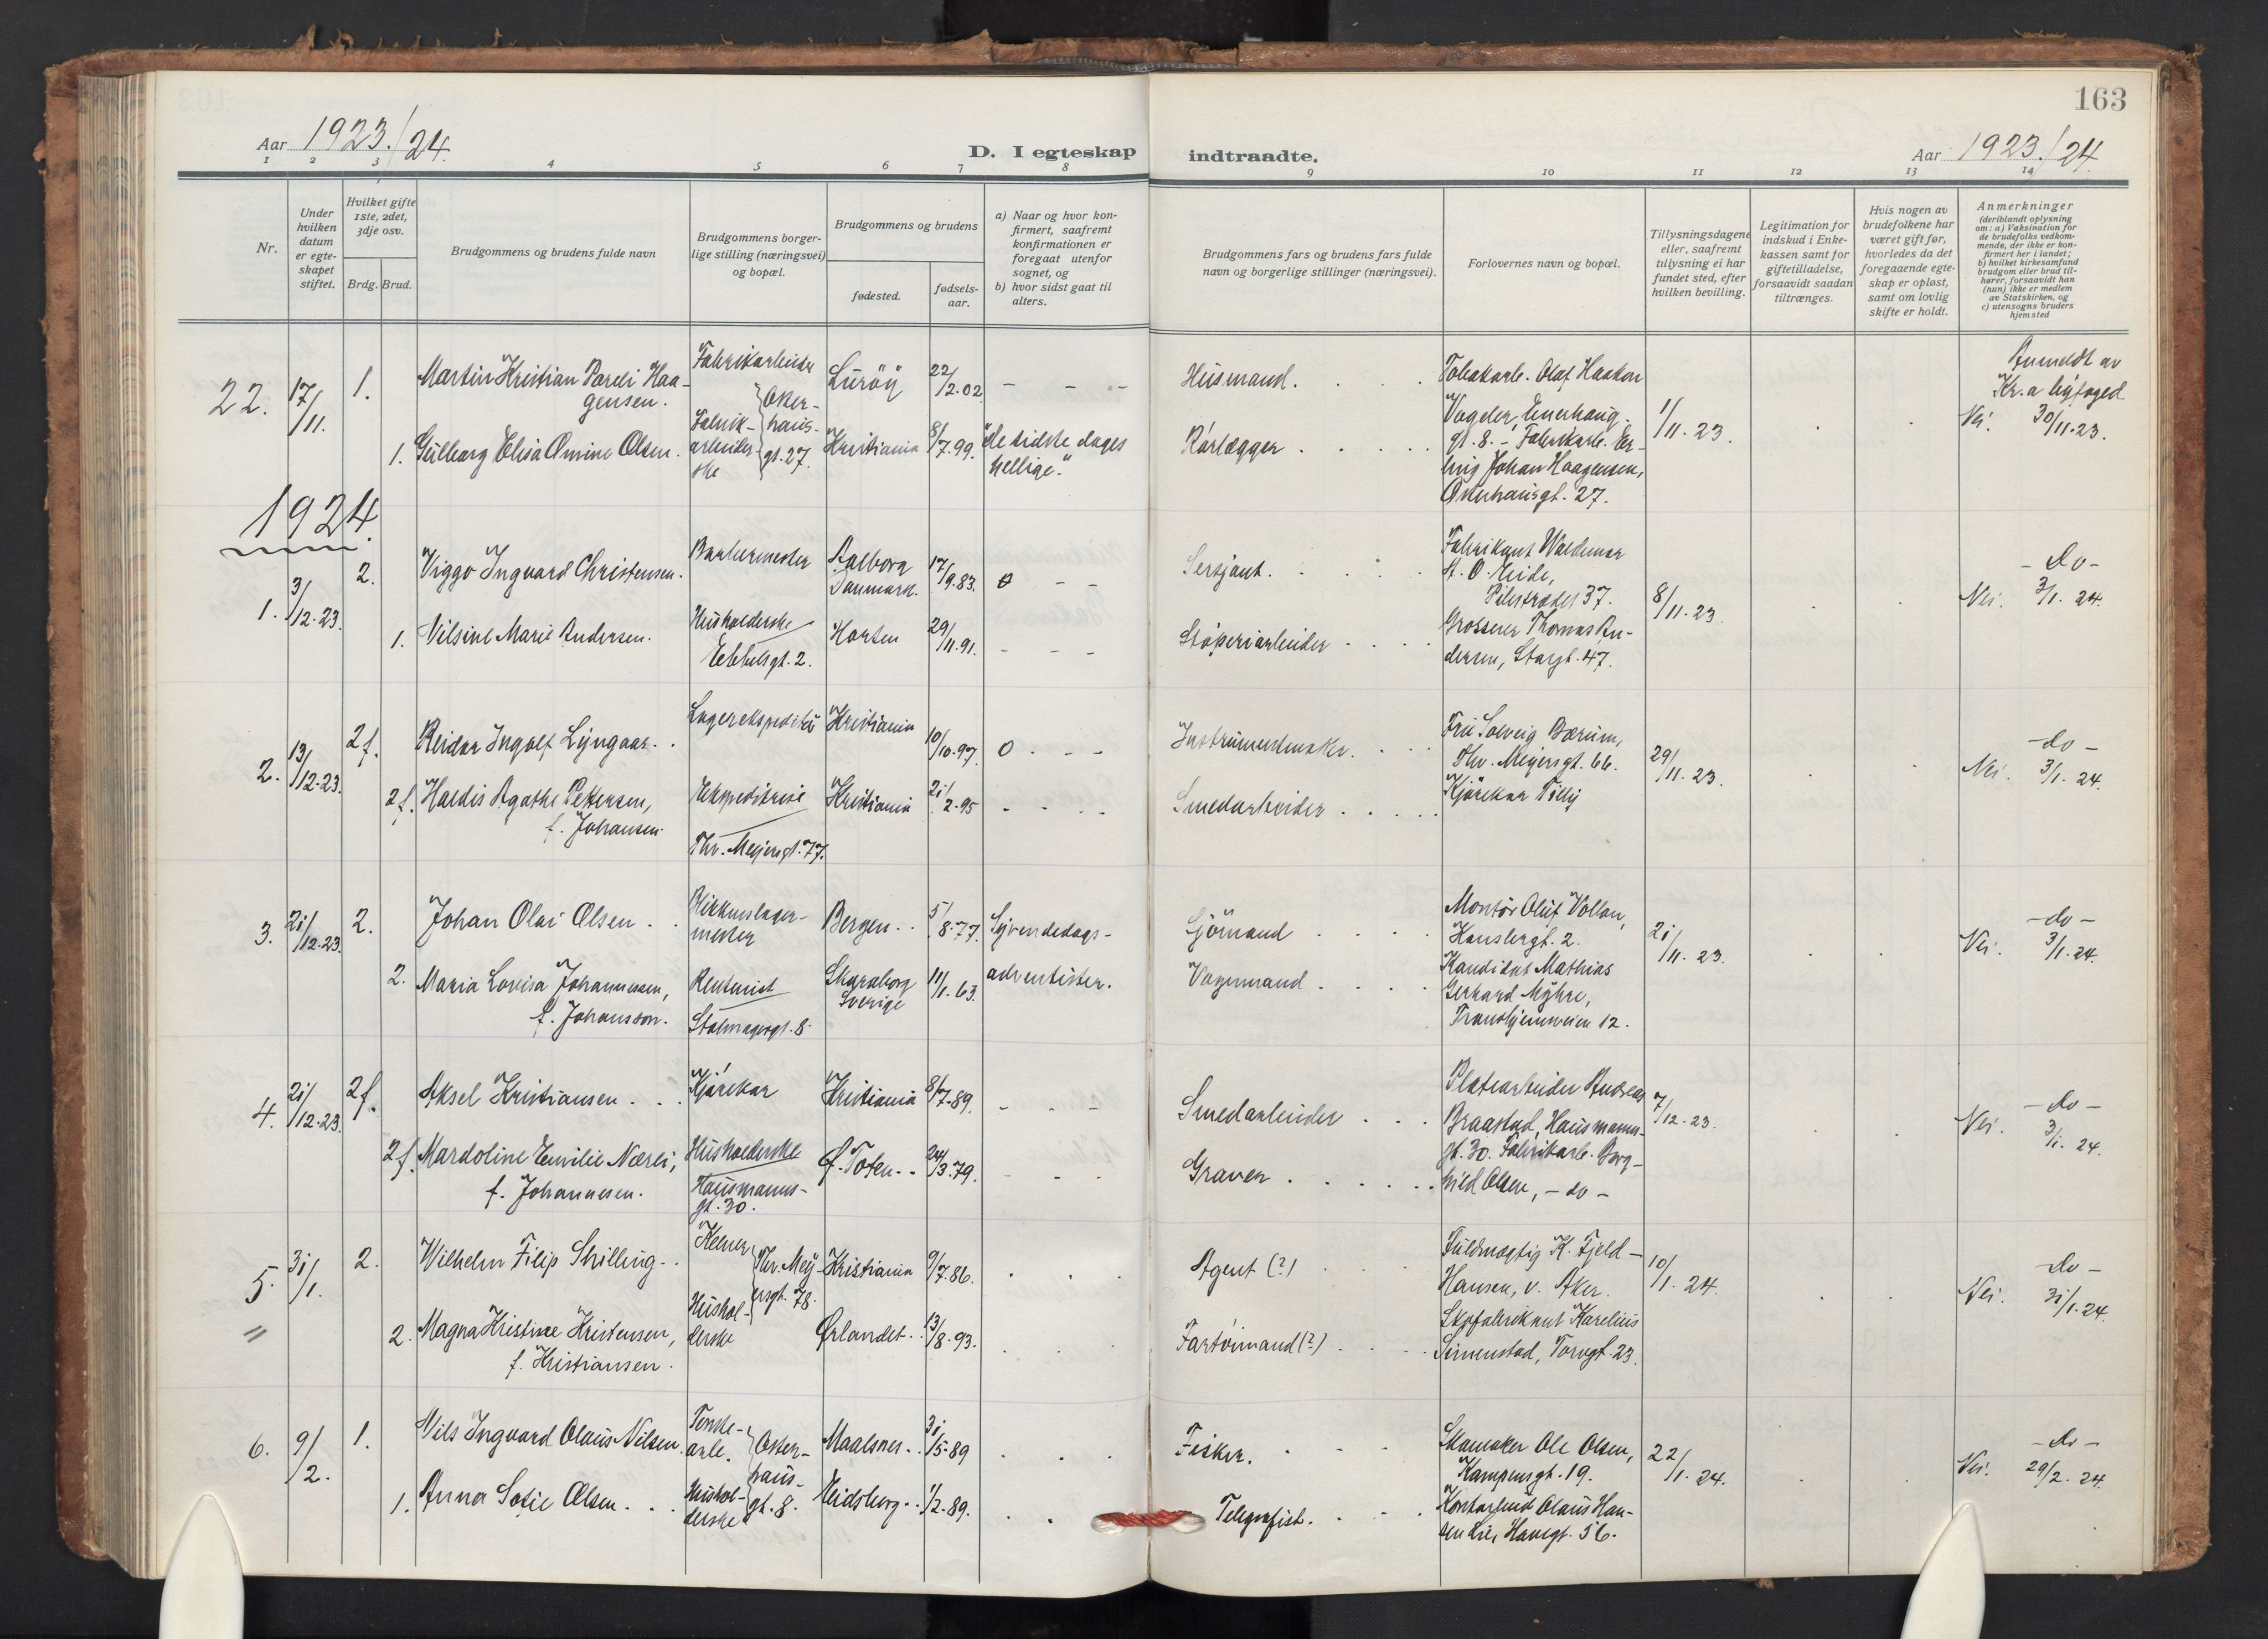 163
Aar 1923./24.
D. I egteskap indtraadte.
Aar 1923./24.
1 2 3 4 5 6 7 8 9 10 11 12 13 14
Nr.
Under hvilken datum er egteskapet stiftet.
Hvilket gifte 1ste, 2det, 3dje osv.
Brdg. Brud.
Brudgommens og brudens fulde navn
Brudgommens borgerlige stilling (næringsvei) og bopæl.
Brudgommens og brudens
fødested.
fødselsaar.
a) Naar og hvor konfirmert, saafremt konfirmationen er foregaat utenfor sognet, og
b) hvor sidst gaat til alters.
Brudgommens fars og brudens fars fulde navn og borgerlige stillinger (næringsvei).
Forlovernes navn og bopæl.
Tillysningsdagene eller, saafremt tillysning ei har fundet sted, efter hvilken bevilling.
Legitimation for indskud i Enkekassen samt for giftetilladelse, forsaavidt saadan tiltrænges.
Hvis nogen av brudefolkene har været gift før, hvorledes da det foregaaende egteskap er opløst, samt om lovlig skifte er holdt.
Anmerkninger
(deriblandt oplysning om: a) Vaksination for de brudefolks vedkommende, der ikke er konfirmert her i landet;
b) hvilket kirkesamfund brudgom eller brud tilhører, forsaavidt han (hun) ikke er medlem av Statskirken, og
c) utensogns bruders hjemsted
22. 17/11. 1. Martin Kristian Pareli Haagensen. Fabrikarbeider Lurøy 22/2.02 - - - Husmand.
1. Gulborg Elisa Omine Olsen. Fabrikarbeiderske Osterhausgt. 27. Kristiania 8/7.99. "de sidste dages hellige." Rørlægger
Tobakarb. Olaf Haakon Vogeler, Enerhauggt. 8. - Fabrikarb. Erling Johan Haagensen, Osterhausgt. 27.
1/11.23.
Nei. Anmeldt av Kr.a byfoged 30/11.23.
1924.
1. 3/12.23. 2. Viggo Ingvard Christensen. Barbermester Aalborg Danmark. 17/9.83. 0 - - Sersjant.
1. Nilsine Marie Andersen. Husholderske Ebbelsgt. 2. Horten 29/11.91. - - - Støperiarbeider
Fabrikant Waldemar A. O. Eide, Pilestrædet 37.
Grosserer Thomas Andersen, Storgt. 47.
8/11.23.
Nei. -do- 3/1.24.
2. 13/12.23. 2f. Reidar Ingolf Lyngaas. Lagerekspeditør Kristiania 10/10.97. 0 - - - Instrumentmaker.
2f. Haldis Agathe Pettersen, f. Johansen. Ekspeditrise Thv. Meyersgt. 77. Kristiania 21/2.95 Smedarbeider
Fru Solveig Bærum, Thv. Meyersgt. 66.
Kjørekar Tilly
29/11.23.
Nei. -do- 3/1.24.
3. 21/12.23. 2. Johan Olai Olsen. Blikkenslagermester Bergen 5/8.77. Syvendedags- Sjømand
2. Maria Lovisa Johannessen, f. Johansson. Rentenist Stolmagergt. 8. Skaraborg Sverige 11/1.63. adventister. Vognmand
Montør Oluf Vollan, Hauslergt. 2.
Kandidat Mathias Gerhard Myhre, Trondhjemsveien 12.
21/11.23.
Nei. -do- 3/1.24.
4. 21/12.23. 2f. Aksel Kristiansen. Kjørekar Kristiania 8/7.89. - - - Smedarbeider
2f. Mardoline Emilie Næsli, f. Johannesen. Husholderske Hausmannsgt. 30. Ø. Toten 24/3.79. Graver
Platearbeider Andreas Braastad, Hausmannsgt. 30. Fabrikarb. Borghild Olsen, -do-
7/12.23.
Nei. -do- 3/1.24.
5. 31/1. 2. Wilhelm Filip Skilling. Kelner Thv. Meyersgt. 78. Kristiania 9/7.86. Agent (?)
2. Magna Kristine Kristensen, f. Kristiansen. Husholderske Ørlandet 13/8.93. Fartøimand (?)
Fuldmægtig K. Fjeld-Hansen, v. Aker.
Skofabrikant Karelius Simenstad, Torvgt. 23.
10/1.24.
Nei. -do- 31/1.24.
6. 9/2. 1. Nils Ingvard Olaus Nilsen. Tomtearb. Osterhausgt. 8. Maalsnes 31/5.89 Fisker.
1. Anna Sofie Olsen. Husholderske Eidsberg 1/2.89. Telegrafist.
Skomaker Ole Olsen, Kampensgt. 19.
Kontorbud Olaus Hansen Lie, Havegt. 56.
22/1.24.
Nei. -do- 29/2.24.